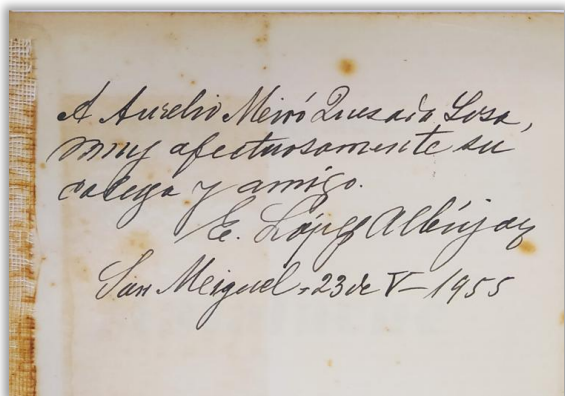 A Aurelio Miró Quesada Sosa,
muy afectuosamente su
colega y amigo.
E. López Albújar
San Miguel, 23 de V - 1955